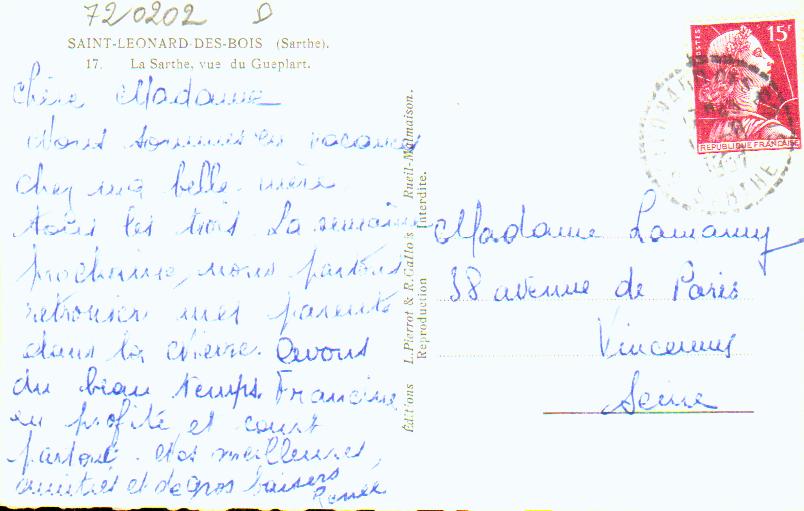 72/0202 D
SAINT-LEONARD-DES-BOIS (Sarthe).
17. La Sarthe, vue du Gueplart.
Chère Madame
Nous sommes en vacances
chez ma belle-mère
tous les trois. La semaine
prochaine, nous partons
retrouver mes parents
dans la Nièvre. Avons
du beau temps. Francine
en profite et court
partout. Nos meilleures
amitiés et de gros baisers
Renée
Éditions L. Pierrot & R. Gallois Rueil-Malmaison.
Reproduction Interdite.
POSTES 15F
REPUBLIQUE FRANÇAISE
1957
SARTHE
Madame Lamamy
38 avenue de Paris
Vincennes
Seine